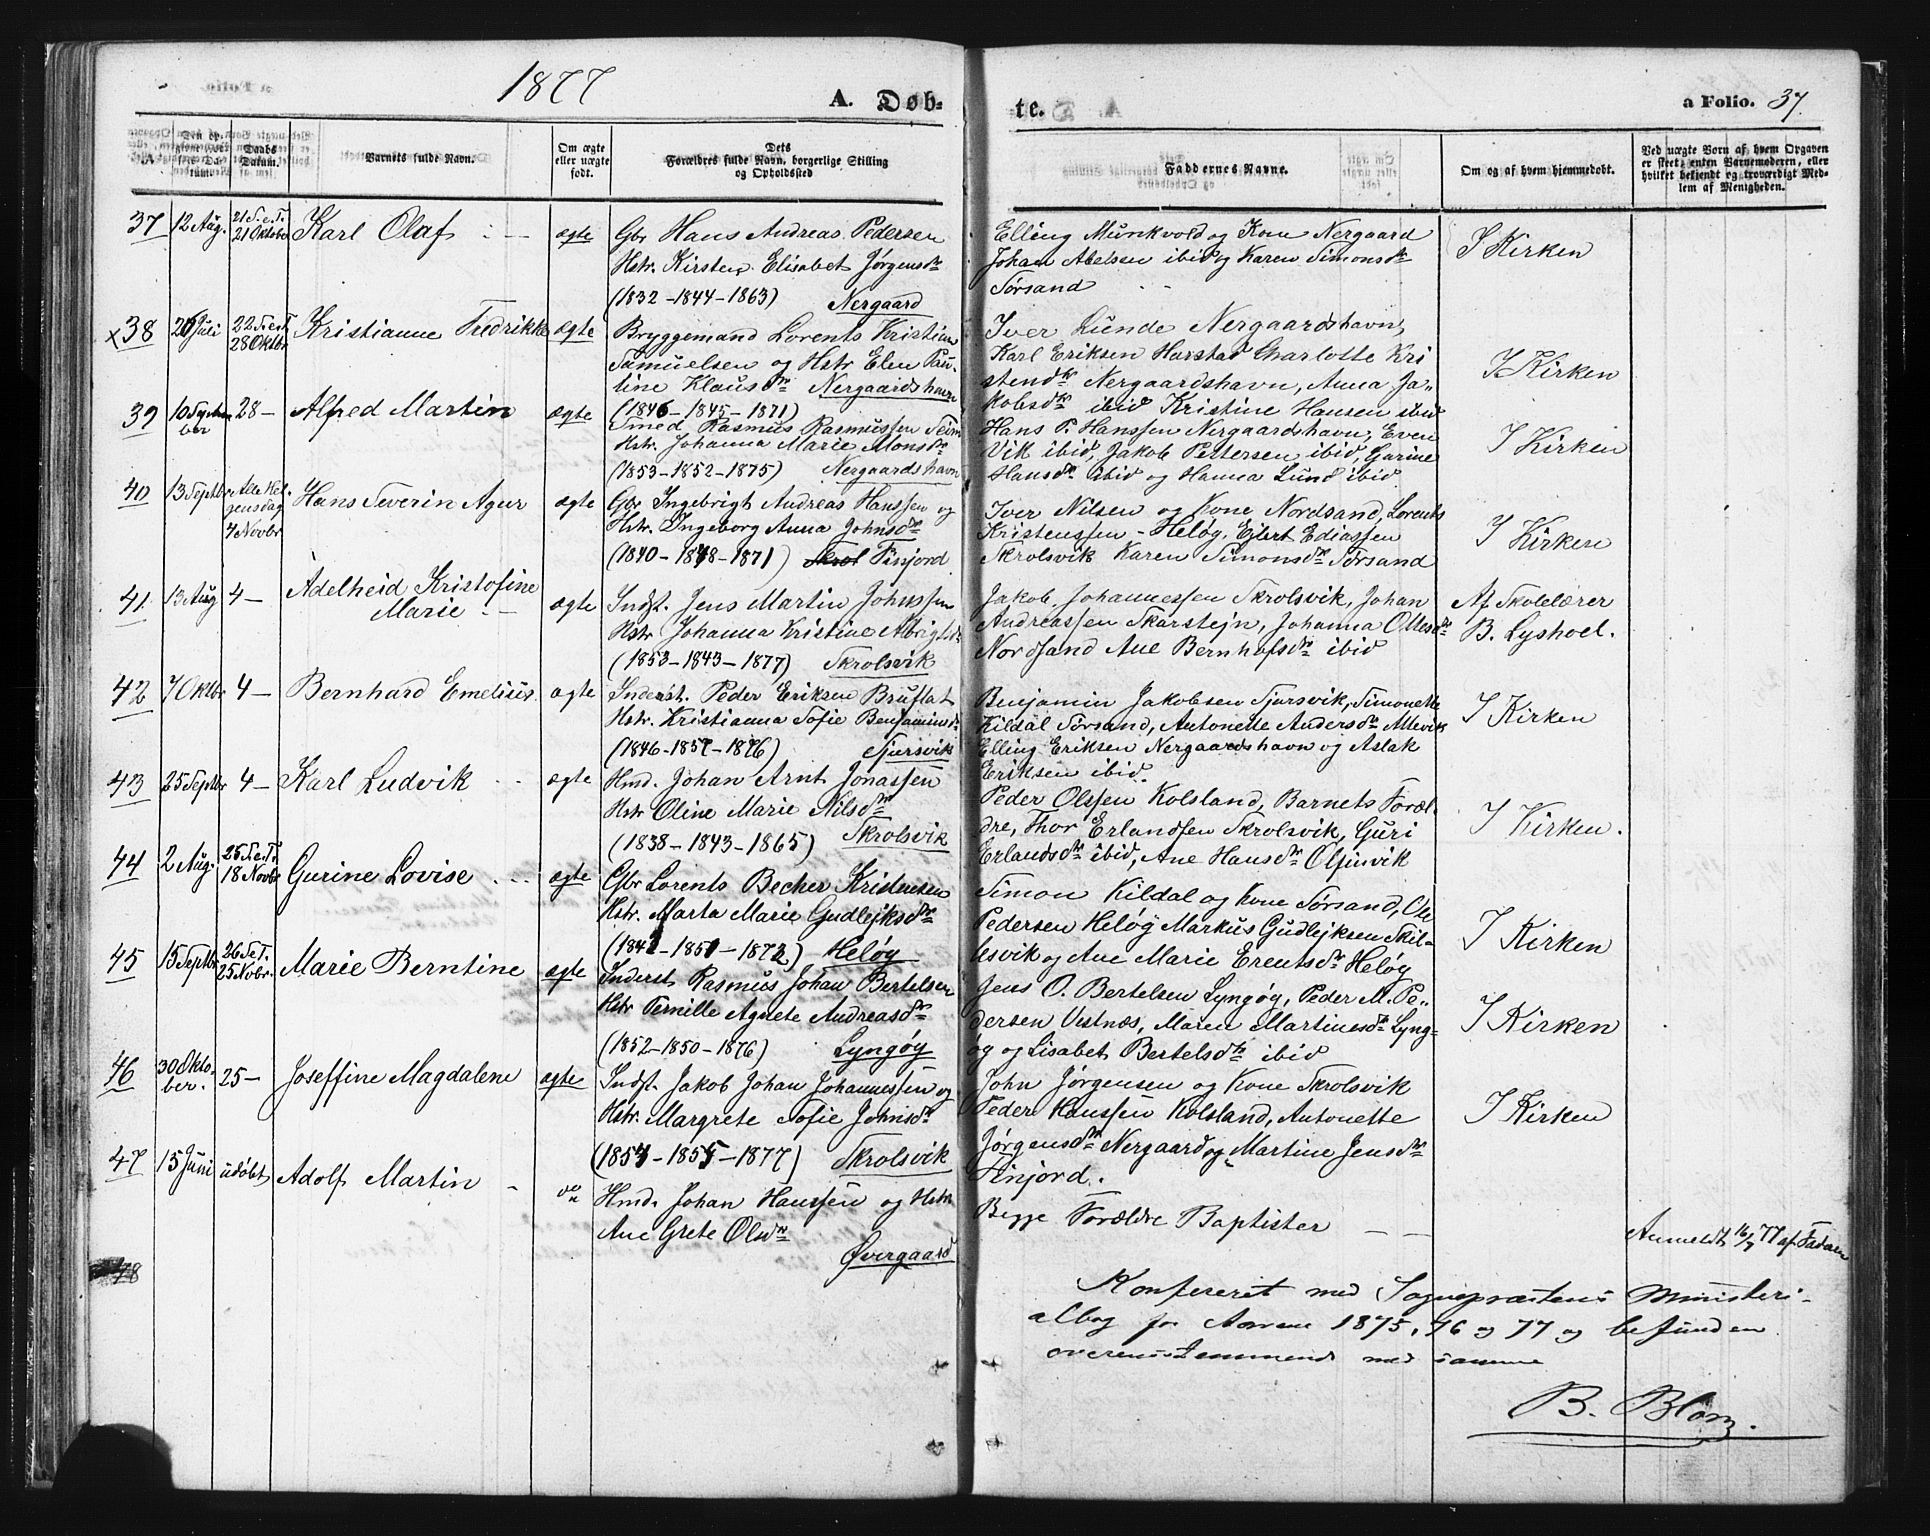 1877
A. Døb-
Den opgivne Fødselsdatum.
Daabs Datum.
Barnets fulde Navn.
Om ægte eller uægte født.
Dets
Forældres fulde Navn, borgerlige Stilling
og Opholdssted
37 12 Aug. 21 S.e.T. 21 Oktober Karl Olaf ægte Gbr Hans Andreas Pedersen
Hstr. Kirsten Elisabet Jørgensdr
(1832-1844-1863) Nergaard
x38 Juli 22 S.e.T. 28 Oktbr Kristianne Fredrikke ægte Bryggemand Lorents Kristian
Samuelsen og Hstr Elen Pau-
line Klausdr Nergaardshavn
(1846-1845-1871)
39 10 Septem ber 28- Alfred Martin ægte Smed Rasmus Rasmussen Seim
Hstr. Johanna Marie Monsdr
(1853-1852-1875) Nergaardshavn
40 13 Septbr Alle Helgensdag 4 Novbr Hans Severin Agur ægte Gbr Ingebrigt Andreas Hanssen og
Hstr. Ingeborg Anna Johnsdr
(1840-1848-1871) Skrol Finjord
41 13 Aug 4- Adelheid Kristofine
Marie - ægte Indst. Jens Martin Johnssen
Hstr Johanna Kristine Albrigtsdr
(1853-1843-1877) Skrolsvik
42 7 Oktbr 4- Bernhard Emelius ægte Inderst. Peder Eriksen Bruflat
Hstr. Kristianna Sofie Benjaminsdr
(1846-1857-1876) Tjursvik
43 25 Septbr 4- Karl Ludvik ægte Hmd. Johan Arnt Jonassen
Hstr Oline Marie Nilsdr
(1838-1843-1865) Skrolsvik
44 2 Aug. 25 S.e.T. 18 Novbr Gurine Lovise ægte Gbr Lorents Becher Kristensen
Hstr. Marta Marie Gudlejksdr
(1842-1851-1872) Heløg
45 15 Septbr 26 S.e.T. 25 Novbr Marie Berntine ægte Inderst Rasmus Johan Bertelsen
Hstr Pernille Agnete Andreasdr
(1852-1850-1876) Lyngøy
46 30 Oktober. 25- Joseffine Magdalene ægte Indst. Jakob Johan Johannessen og
Hstr. Margrete Sofie Johnsdr
(1854-1855-1877) Skrolsvik
47 15 Juni udøbt Adolf Martin - do Hmd. Johan Hanssen og Hstr
Ane Grete Olsdr
Øvergaard
48
te.
a Folio. 37.
Faddernes Navne.
Om og af hvem hjemmedøbt.
Ved uægte Børn af hvem Opgaven
er skeet, enten Barnemoderen, eller
hvilket bekjendt og troværdigt Med-
lem af Menigheden.
Elling Munkvold og Kone Nergaard
Johan Abelssen ibid og Karen Simonsdr
Sørsand
I Kirken
Iver Lunde Nergaardshavn,
Karl Eriksen Harstad Charlotte Kri
stendr Nergaardshavn, Anna Ja-
kobsdr ibid Kristine Hansen ibid
I Kirken
Hans P. Hanssen Nergaardshavn, Even
Vik ibid, Jakob Pettersen ibid, Gurine
Hansdr ibid og Hanna Lund ibid.
I Kirken
Iver Nilsen og Kone Nordsand, Lorents
Kristenssen - Heløg, Ejlert Ediassen
Skrolsvik Karen Simonsdr Sørsand
I Kirken
Jakob Johannessen Skrolsvik, Johan
Andreassen Skarstejn, Johanna Olsdr
Nordsand Ane Bernhofsdr ibid
Af Skolelærer
B. Lyshoel.
Benjamin Jakobsen Tjursvik, Simonette
Kildal Sørsand, Antonette Andersdr Allevik
Elling Eriksen Nergaardshavn og Aslak
Eriksen ibid.
I Kirken
Peder Olssen Kolsland, Barnets Foræl-
dre, Thor Erlandsen Skrolsvik, Guri
Erlandsdr ibid, Ane Hansdr Olfinvik
I Kirken.
Simon Kildal og Kone Sørsand, Ole
Pedersen Heløg Markus Gudlejksen Skil-
lesvik og Ane Marie Erentsdr Heløg
I Kirken
Jens O. Bertelsen Lyngøy, Peder M. Pe-
dersen Vestnæs, Maren Martinesdr Lyng-
øy og Lisabet Bertelsdr ibid
I Kirken
John Jørgensen og Kone Skrolsvik
Peder Hanssen Kolsland, Antonette
Jørgensdr Nergaard og Martine Jensdr
Finjord.
I Kirken
Begge Forældre Baptister
Anmeldt 16/7 77 af Faderen
Konfereret med Sognepræstens Ministeri-
albog for Aarene 1875, 76 og 77 og befunden
overensstemmende med samme
B. Blom.